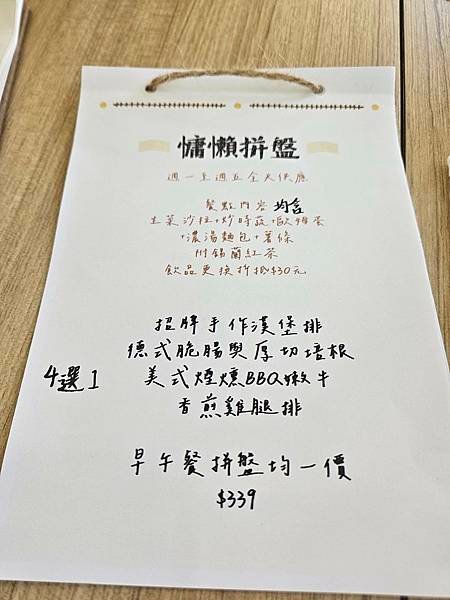 慵懶拼盤
週一至週五全天供應
餐點內容 均含
生菜沙拉+炒時蔬+歐姆蛋
+濃湯麵包+薯條
附錫蘭紅茶
飲品更換折抵$30元
招牌手作漢堡排
德式脆腸與厚切培根
4選1 美式煙燻BBQ嫩牛
香煎雞腿排
早午餐拼盤均一價
$339